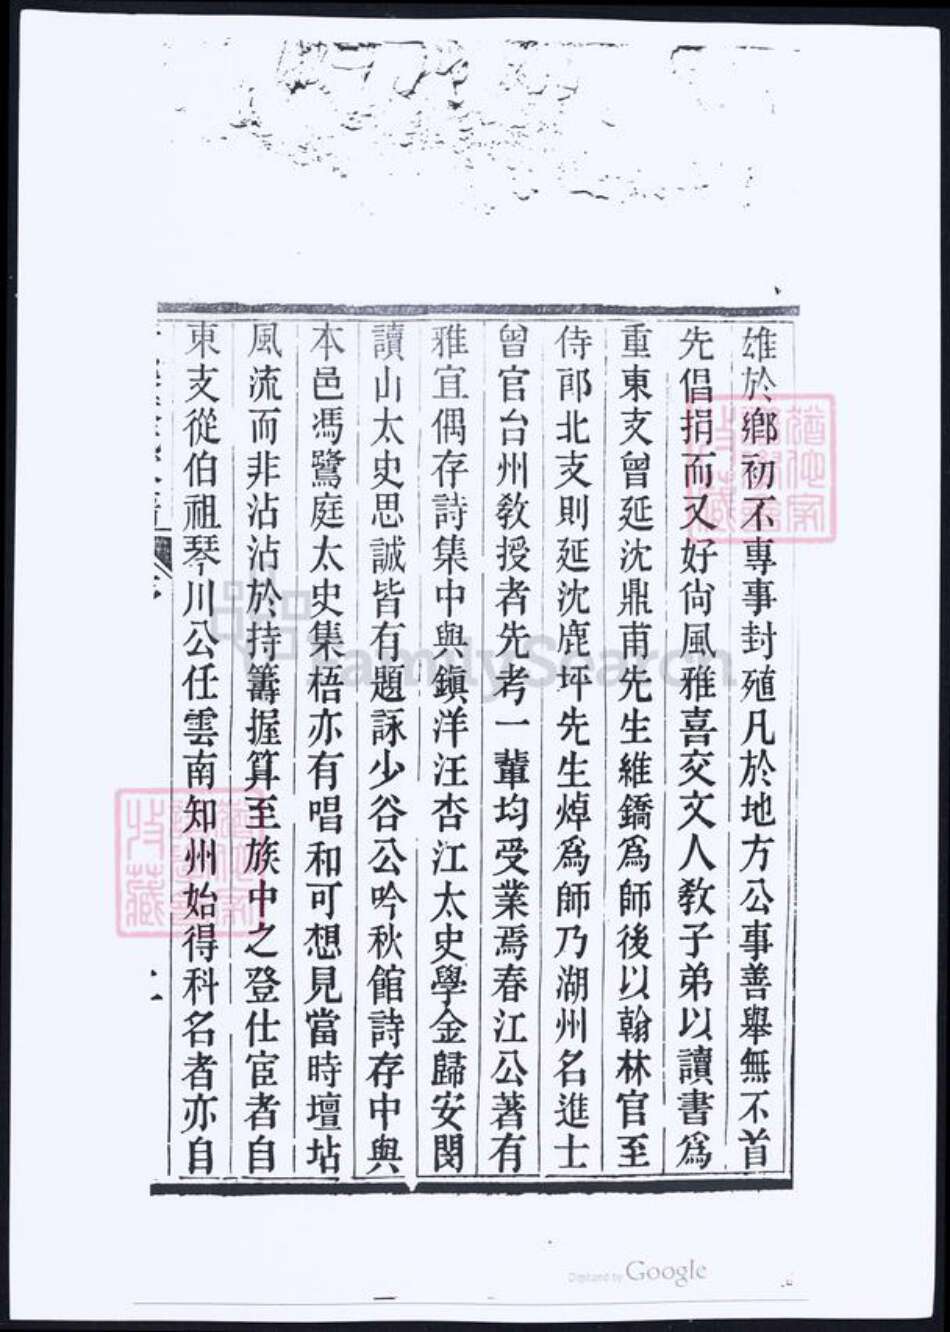 雄於鄉初不專事封殖凡於地方公事善舉無不首
先倡捐而又好尚風雅喜交文人敎子弟以讀書爲
重東支曾延沈鼎甫先生維鐈爲師後以翰林官至
侍郎北支則延沈鹿坪先生焯爲師乃湖州名進士
曾官台州敎授者先考一輩均受業焉春江公著有
雅宜偶存詩集中與鎭洋汪杏江太史學金歸安閔
讀山太史思誠皆有題詠少谷公吟秋館詩存中與
本邑馮鷺庭太史集梧亦有唱和可想見當時壇坫
風流而非沾沾於持籌握算至族中之登仕宦者自
東支從伯祖琴川公任雲南知州始得科名者亦自
FamilySearch
Digitized by Google